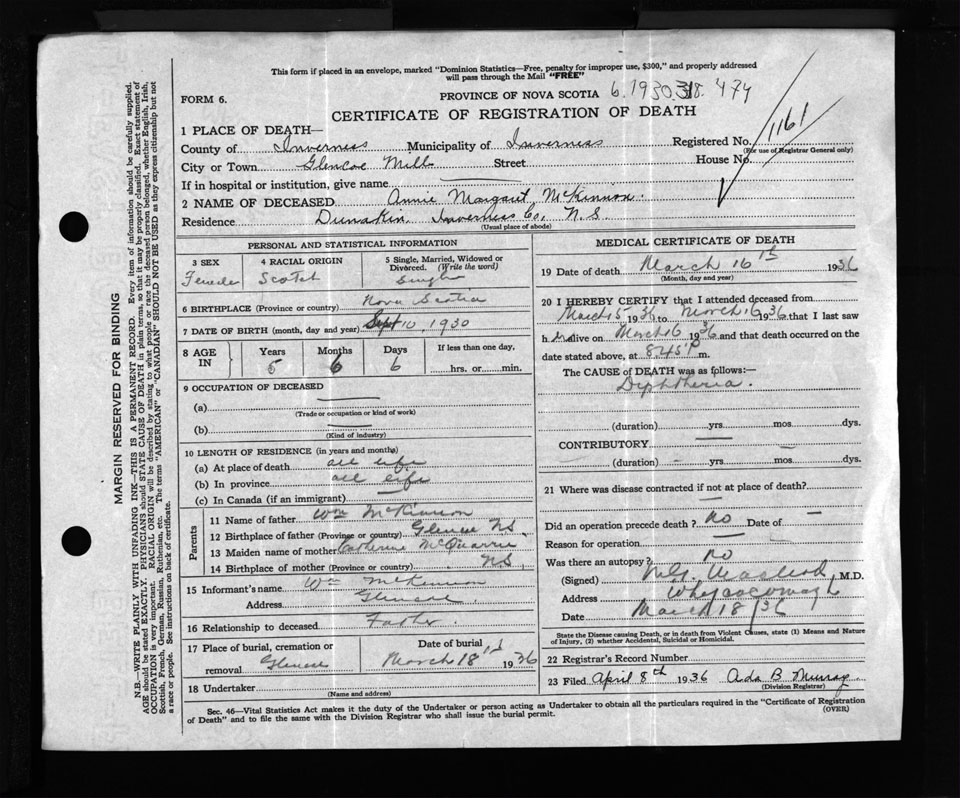 This form if placed in an envelope, marked "Dominion Statistics—Free, penalty for improper use, $300," and properly addressed
will pass through the Mail "FREE"
FORM 6.
PROVINCE OF NOVA SCOTIA 6.1930.318.474
CERTIFICATE OF REGISTRATION OF DEATH
1161
1 PLACE OF DEATH—
County of Inverness Municipality of Inverness Registered No.
(For use of Registrar General only)
City or Town Glencoe Mills Street House No.
If in hospital or institution, give name
2 NAME OF DECEASED Annie Margaret McKinnon
Residence Dunakin Inverness Co, N.S.
(Usual place of abode)
PERSONAL AND STATISTICAL INFORMATION
3 SEX 4 RACIAL ORIGIN 5 Single, Married, Widowed or
Divorced. (Write the word)
Female Scotch Single
6 BIRTHPLACE (Province or country) Nova Scotia
7 DATE OF BIRTH (month, day and year) Sept 10, 1930
8 AGE IN Years Months Days If less than one day,
5 6 6 hrs. or min.
9 OCCUPATION OF DECEASED
(a)
(Trade or occupation or kind of work)
(b)
(Kind of industry)
10 LENGTH OF RESIDENCE (in years and months)
(a) At place of death all life
(b) In province all life
(c) In Canada (if an immigrant)
Parents
11 Name of father Wm McKinnon
12 Birthplace of father (Province or country) Glencoe NS
13 Maiden name of mother Catherine McQuarrie
14 Birthplace of mother (Province or country) NS
15 Informant's name Wm McKinnon
Address Glencoe
16 Relationship to deceased Father.
17 Place of burial, cremation or Date of burial
removal Glencoe March 18 1936
18 Undertaker
(Name and address)
MEDICAL CERTIFICATE OF DEATH
19 Date of death March 16th 1936
(Month, day and year)
20 I HEREBY CERTIFY that I attended deceased from
March 15 1936 to March 16 1936 that I last saw
her alive on March 16 1936 and that death occurred on the
date stated above, at 845 P m.
The CAUSE OF DEATH was as follows:—
Diphtheria.
(duration) yrs mos dys.
CONTRIBUTORY
(duration) yrs mos dys.
21 Where was disease contracted if not at place of death?
Did an operation precede death? No Date of
Reason for operation
Was there an autopsy? No
(Signed) MacLeod, M.D.
Address Whycocomagh
Date March 18/36
State the Disease causing Death, or in death from Violent Causes, state (1) Means and Nature
of Injury, (2) whether Accidental, Suicidal or Homicidal.
22 Registrar's Record Number
23 Filed April 8th 1936 Ada B Murray
(Division Registrar)
Sec. 46—Vital Statistics Act makes it the duty of the Undertaker or person acting as Undertaker to obtain all the particulars required in the "Certificate of Registration
of Death" and to file the same with the Division Registrar who shall issue the burial permit. (OVER)
MARGIN RESERVED FOR BINDING
N.B.—WRITE PLAINLY WITH UNFADING INK—THIS IS A PERMANENT RECORD. Every item of information should be carefully supplied.
AGE should be stated EXACTLY. PHYSICIANS should STATE CAUSE OF DEATH in plain terms, so that it may be properly classified. Exact statement of
OCCUPATION is very important. RACIAL ORIGIN will be described by stating to what people or race the deceased person belonged, whether English, Irish,
Scottish, French, German, Russian, Ruthenian, etc. The terms "AMERICAN" or "CANADIAN" SHOULD NOT BE USED as they express citizenship but not
a race or people. See instructions on back of certificate.